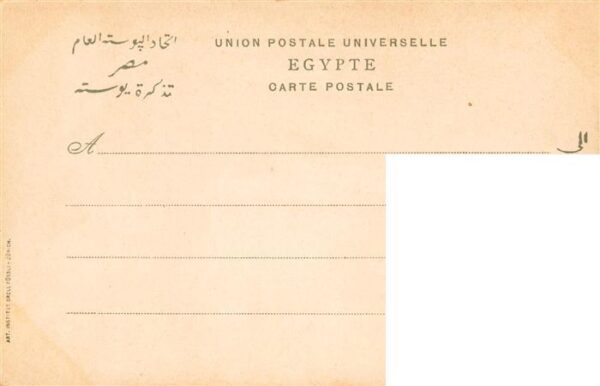 اتحاد البوسته العام
مصر
تذكرة بوسته
UNION POSTALE UNIVERSELLE
EGYPTE
CARTE POSTALE
A
الى
ART. INSTITUT ORELL FÜSSLI - ZÜRICH.